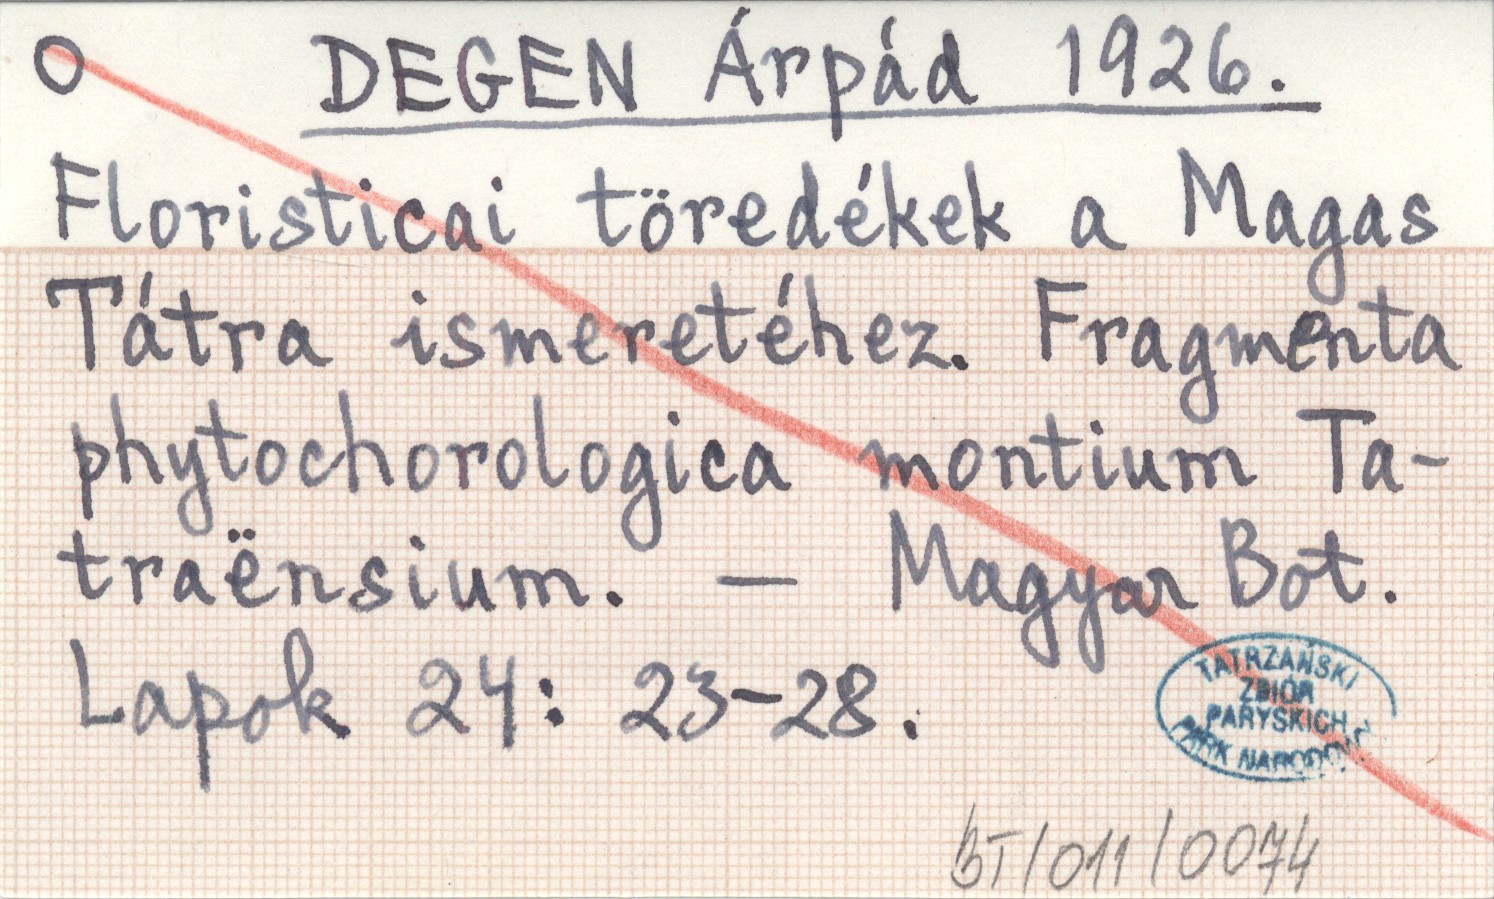 O DEGEN Árpád 1926.
Floristicai töredékek a Magas
Tátra ismeretéhez. Fragmenta
phytochorologica montium Ta-
traënsium. — Magyar Bot.
Lapok 24: 23-28.
TATRZAŃSKI
ZBIÓR
PARYSKICH
PARK NARODOWY
BT/011/0074